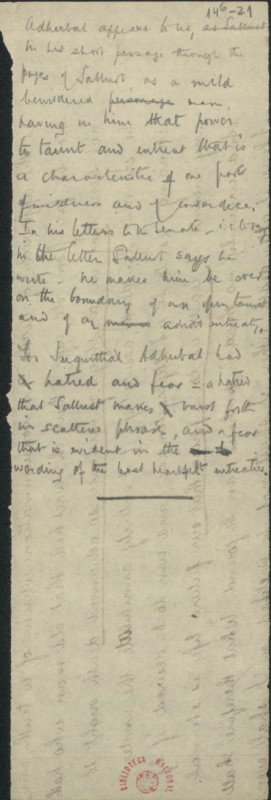 146-21
Adherbal appears to us, as Sallust
in his short passage through the
pages of Sallust as a mild
bewildered personage man
having in him that power
to taunt and entreat that is
a characteristic of one part
of and of cowardice.
In his letters to the Senate - i.e. to say
in the letter Sallust says he
wrote - he makes him be ever
on the boundary of an open taunt
and of an adroit entreaty.
For Jugurtha Adherbal had
a hatred and fear - a hatred
that Sallust makes burst forth
in scattered phrases, and a fear
that is evident in the
wording of the most heartfelt entreaties.
BIBLIOTECA NACIONAL